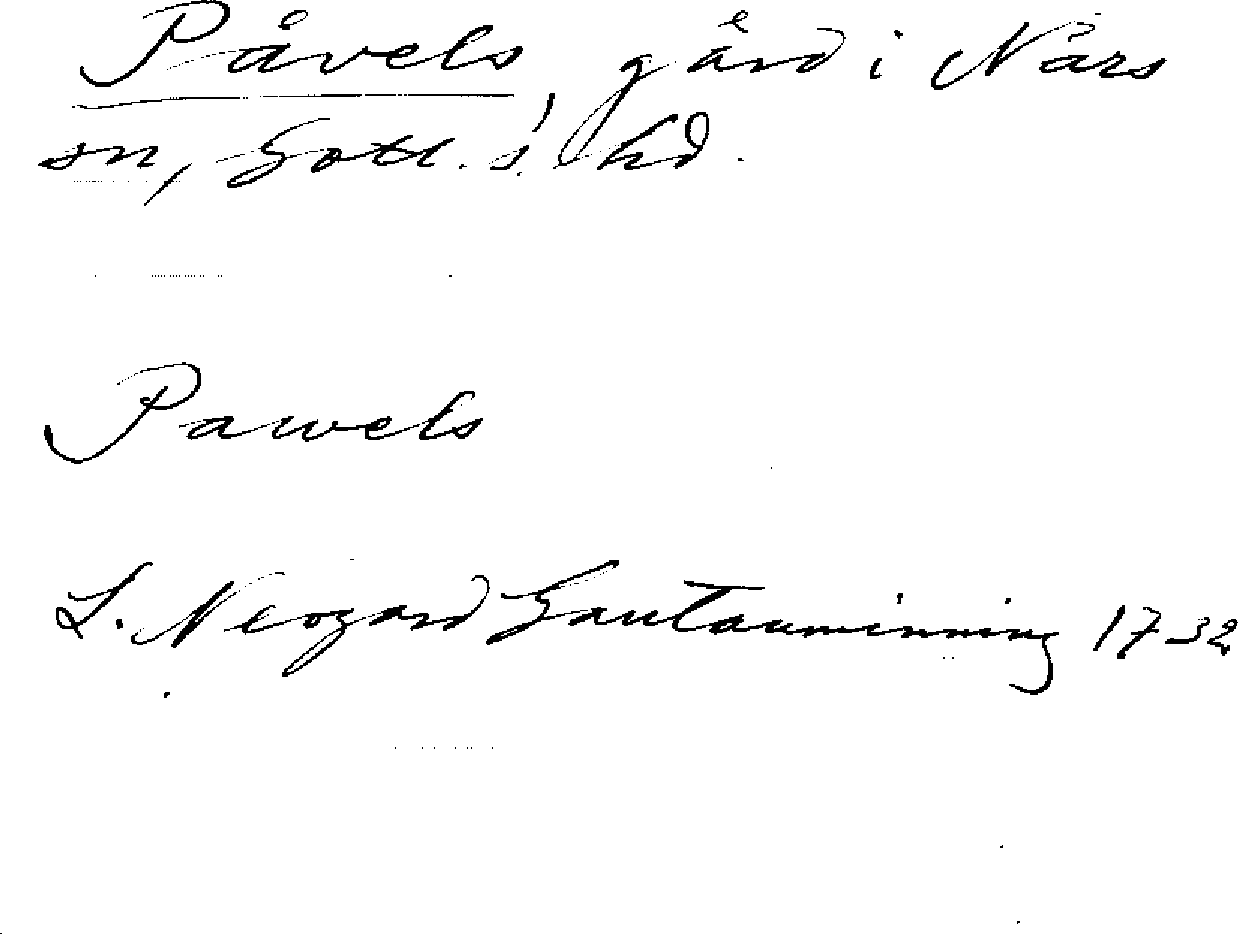 Påvels, gård i Närs
sn, Gotl. s. hd.
Pawels
L. Neogard Gautauminning 1732